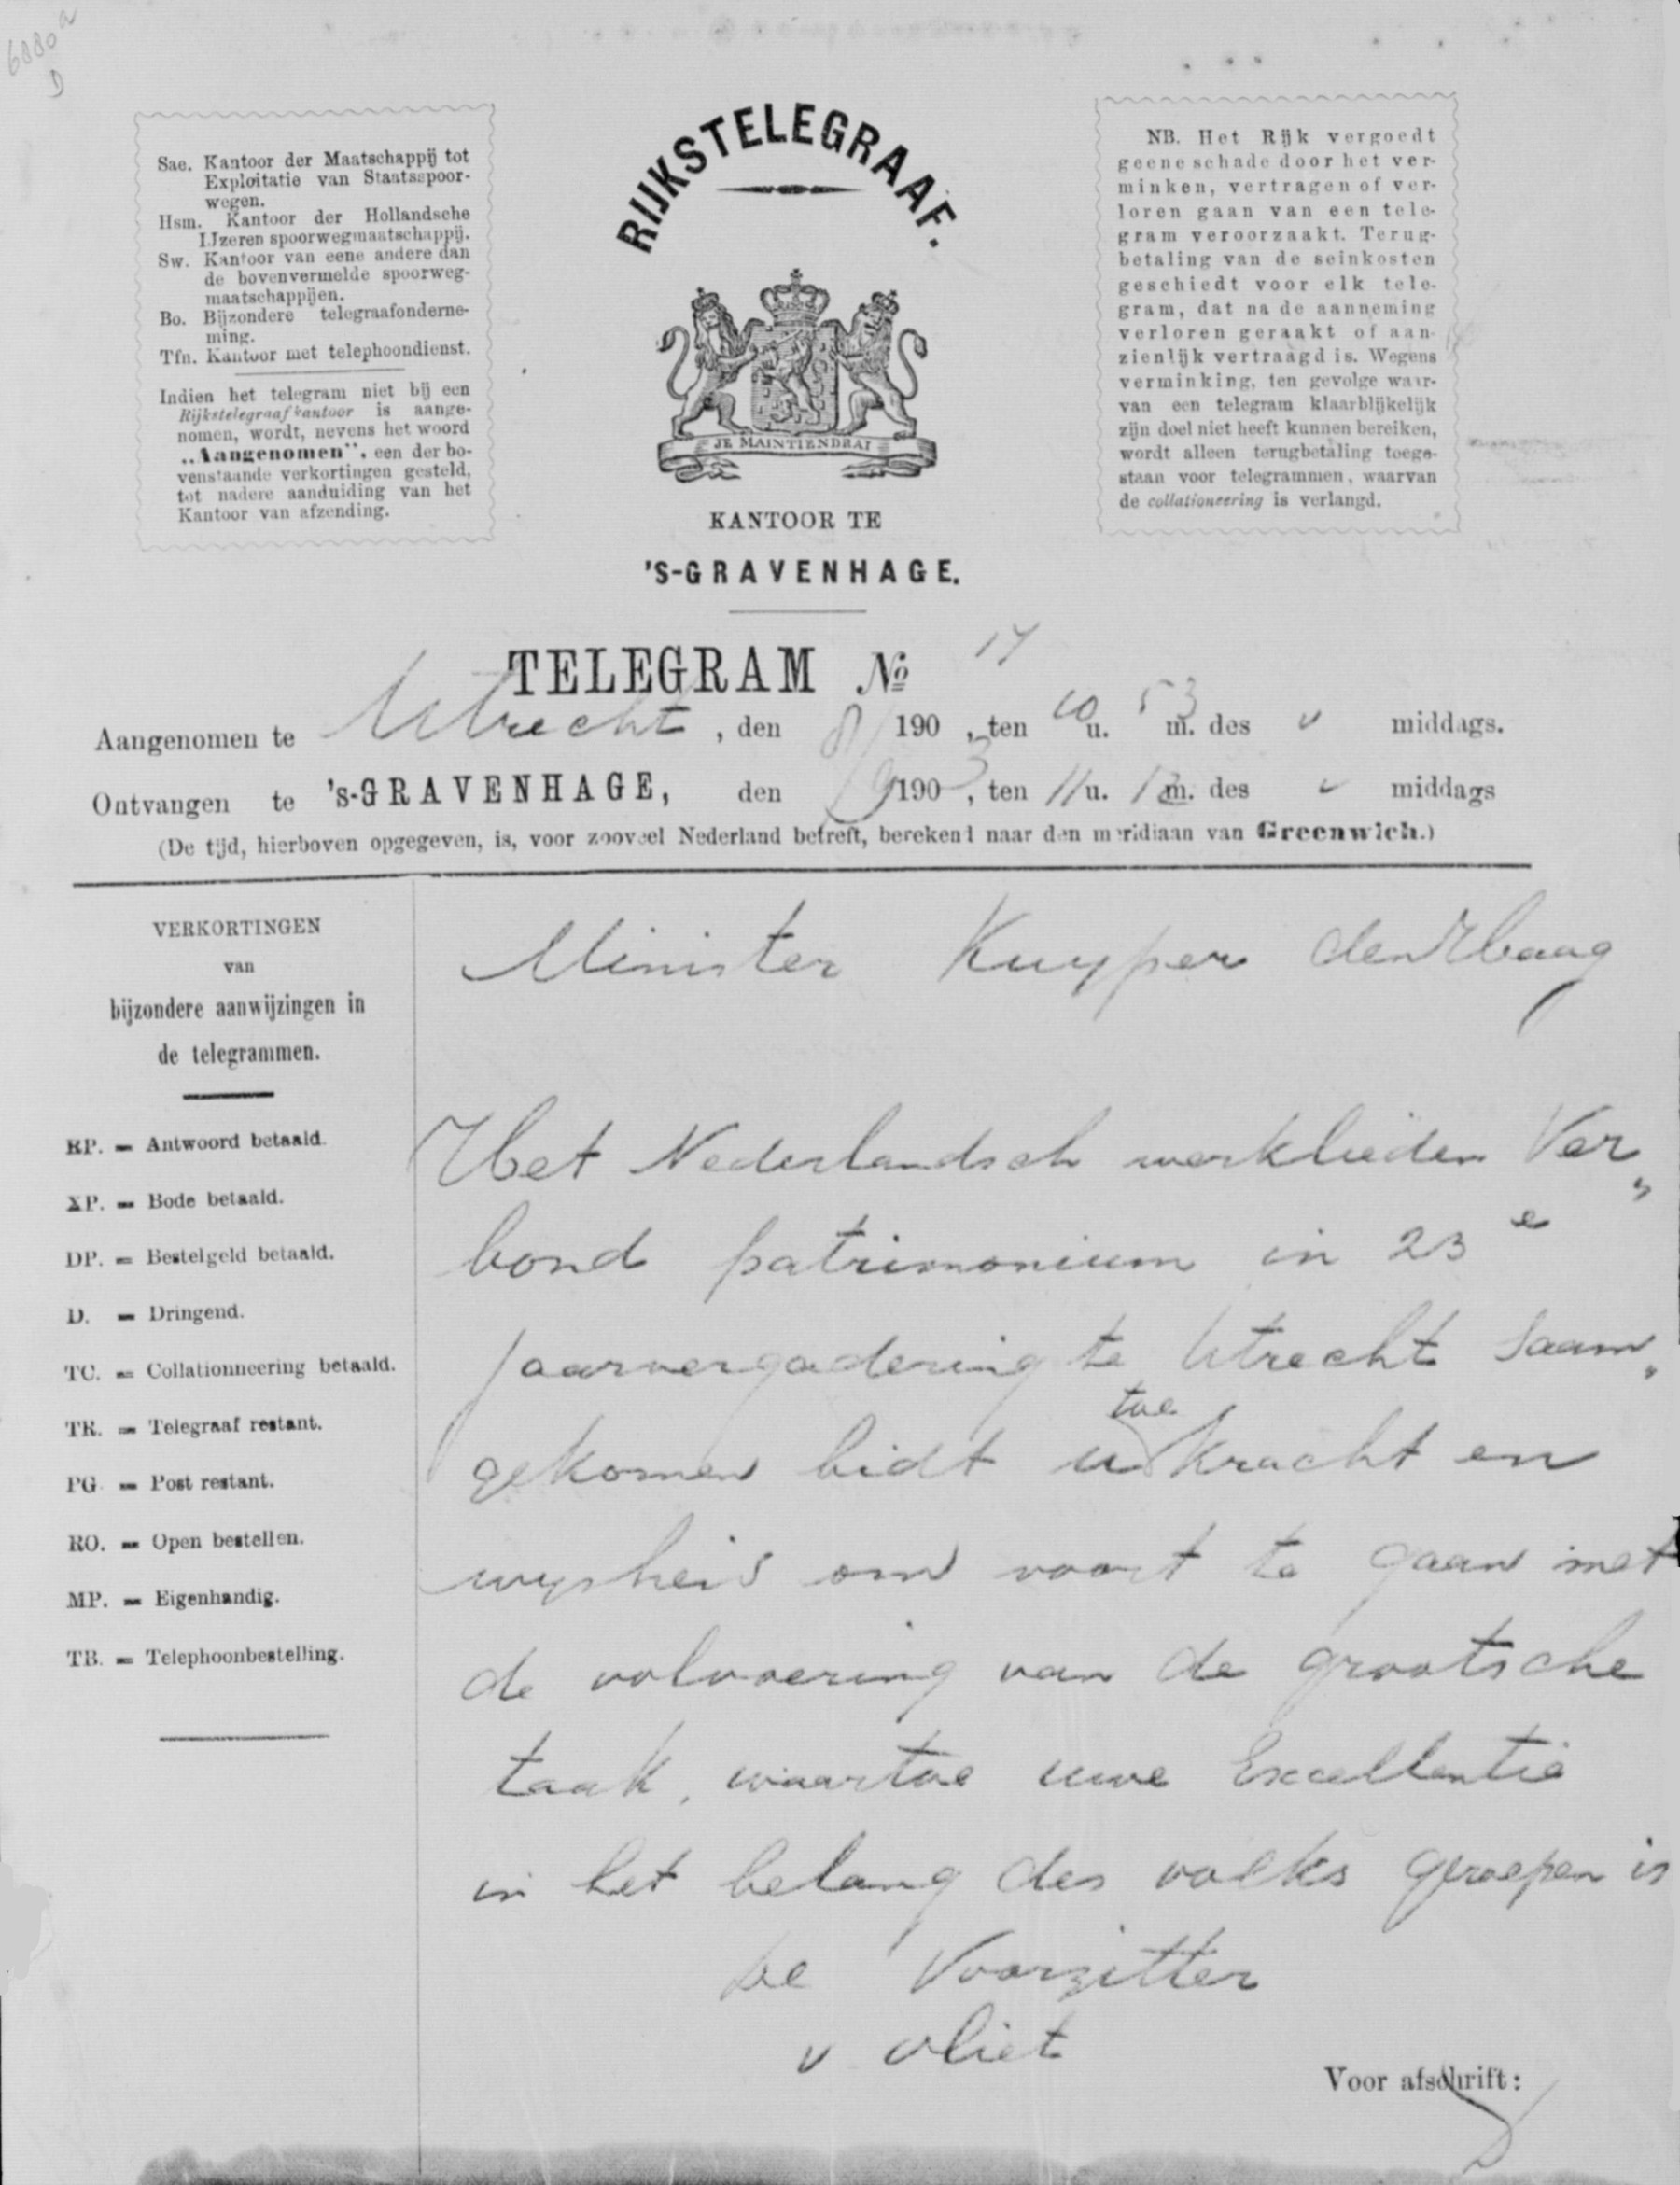 6880a
D
Sae. Kantoor der Maatschappij tot
Exploitatie van Staatsspoor-
wegen.
Hsm. Kantoor der Hollandsche
IJzeren spoorwegmaatschappij.
Sw. Kantoor van eene andere dan
de bovenvermelde spoorweg-
maatschappijen.
Bo. Bijzondere telegraafonderne-
ming.
Tfn. Kantoor met telephoondienst.
Indien het telegram niet bij een
Rijkstelegraafkantoor is aange-
nomen, wordt, nevens het woord
„Aangenomen", een der bo-
venstaande verkortingen gesteld,
tot nadere aanduiding van het
Kantoor van afzending.
RIJKSTELEGRAAF.
JE MAINTIENDRAI
KANTOOR TE
'S-GRAVENHAGE.
NB. Het Rijk vergoedt
geene schade door het ver-
minken, vertragen of ver-
loren gaan van een tele-
gram veroorzaakt. Terug-
betaling van de seinkosten
geschiedt voor elk tele-
gram, dat na de aanneming
verloren geraakt of aan-
zienlijk vertraagd is. Wegens
verminking, ten gevolge waar-
van een telegram klaarblijkelijk
zijn doel niet heeft kunnen bereiken,
wordt alleen terugbetaling toege-
staan voor telegrammen, waarvan
de collationeering is verlangd.
TELEGRAM No
Aangenomen te Utrecht, den 190 , ten 10 u. 53 m. des v middags.
Ontvangen te 's-GRAVENHAGE, den 1903, ten 11 u. 12 m. des v middags
(De tijd, hierboven opgegeven, is, voor zooveel Nederland betreft, berekend naar den meridiaan van Greenwich.)
VERKORTINGEN
van
bijzondere aanwijzingen in
de telegrammen.
RP. = Antwoord betaald.
XP. = Bode betaald.
DP. = Bestelgeld betaald.
D. = Dringend.
TC. = Collationneering betaald.
TR. = Telegraaf restant.
PG. = Post restant.
RO. = Open bestellen.
MP. = Eigenhandig.
TB. = Telephoonbestelling.
Minister Kuyper den Haag
Het Nederlandsch werklieden Ver„
bond patrimonium in 23e
jaarvergadering te Utrecht saam„
gekomen bidt u toe kracht en
wysheid om voort te gaan met
de volvoering van de grootsche
taak, waartoe uwe Excellentie
in het belang des volks geroepen is
De Voorzitter
v vliet
Voor afschrift: